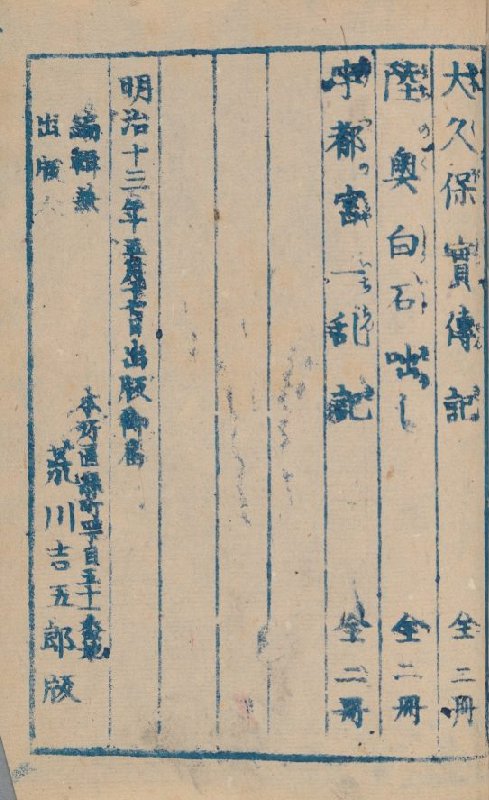 大久保實傳記 全二冊
陸奥白石噺し 全二冊
宇都宮一乱記 全二冊
明治十三年五月十七日出版御届
編輯兼
出版人
本所區緑町四丁目五十一番地
荒川吉五郎版